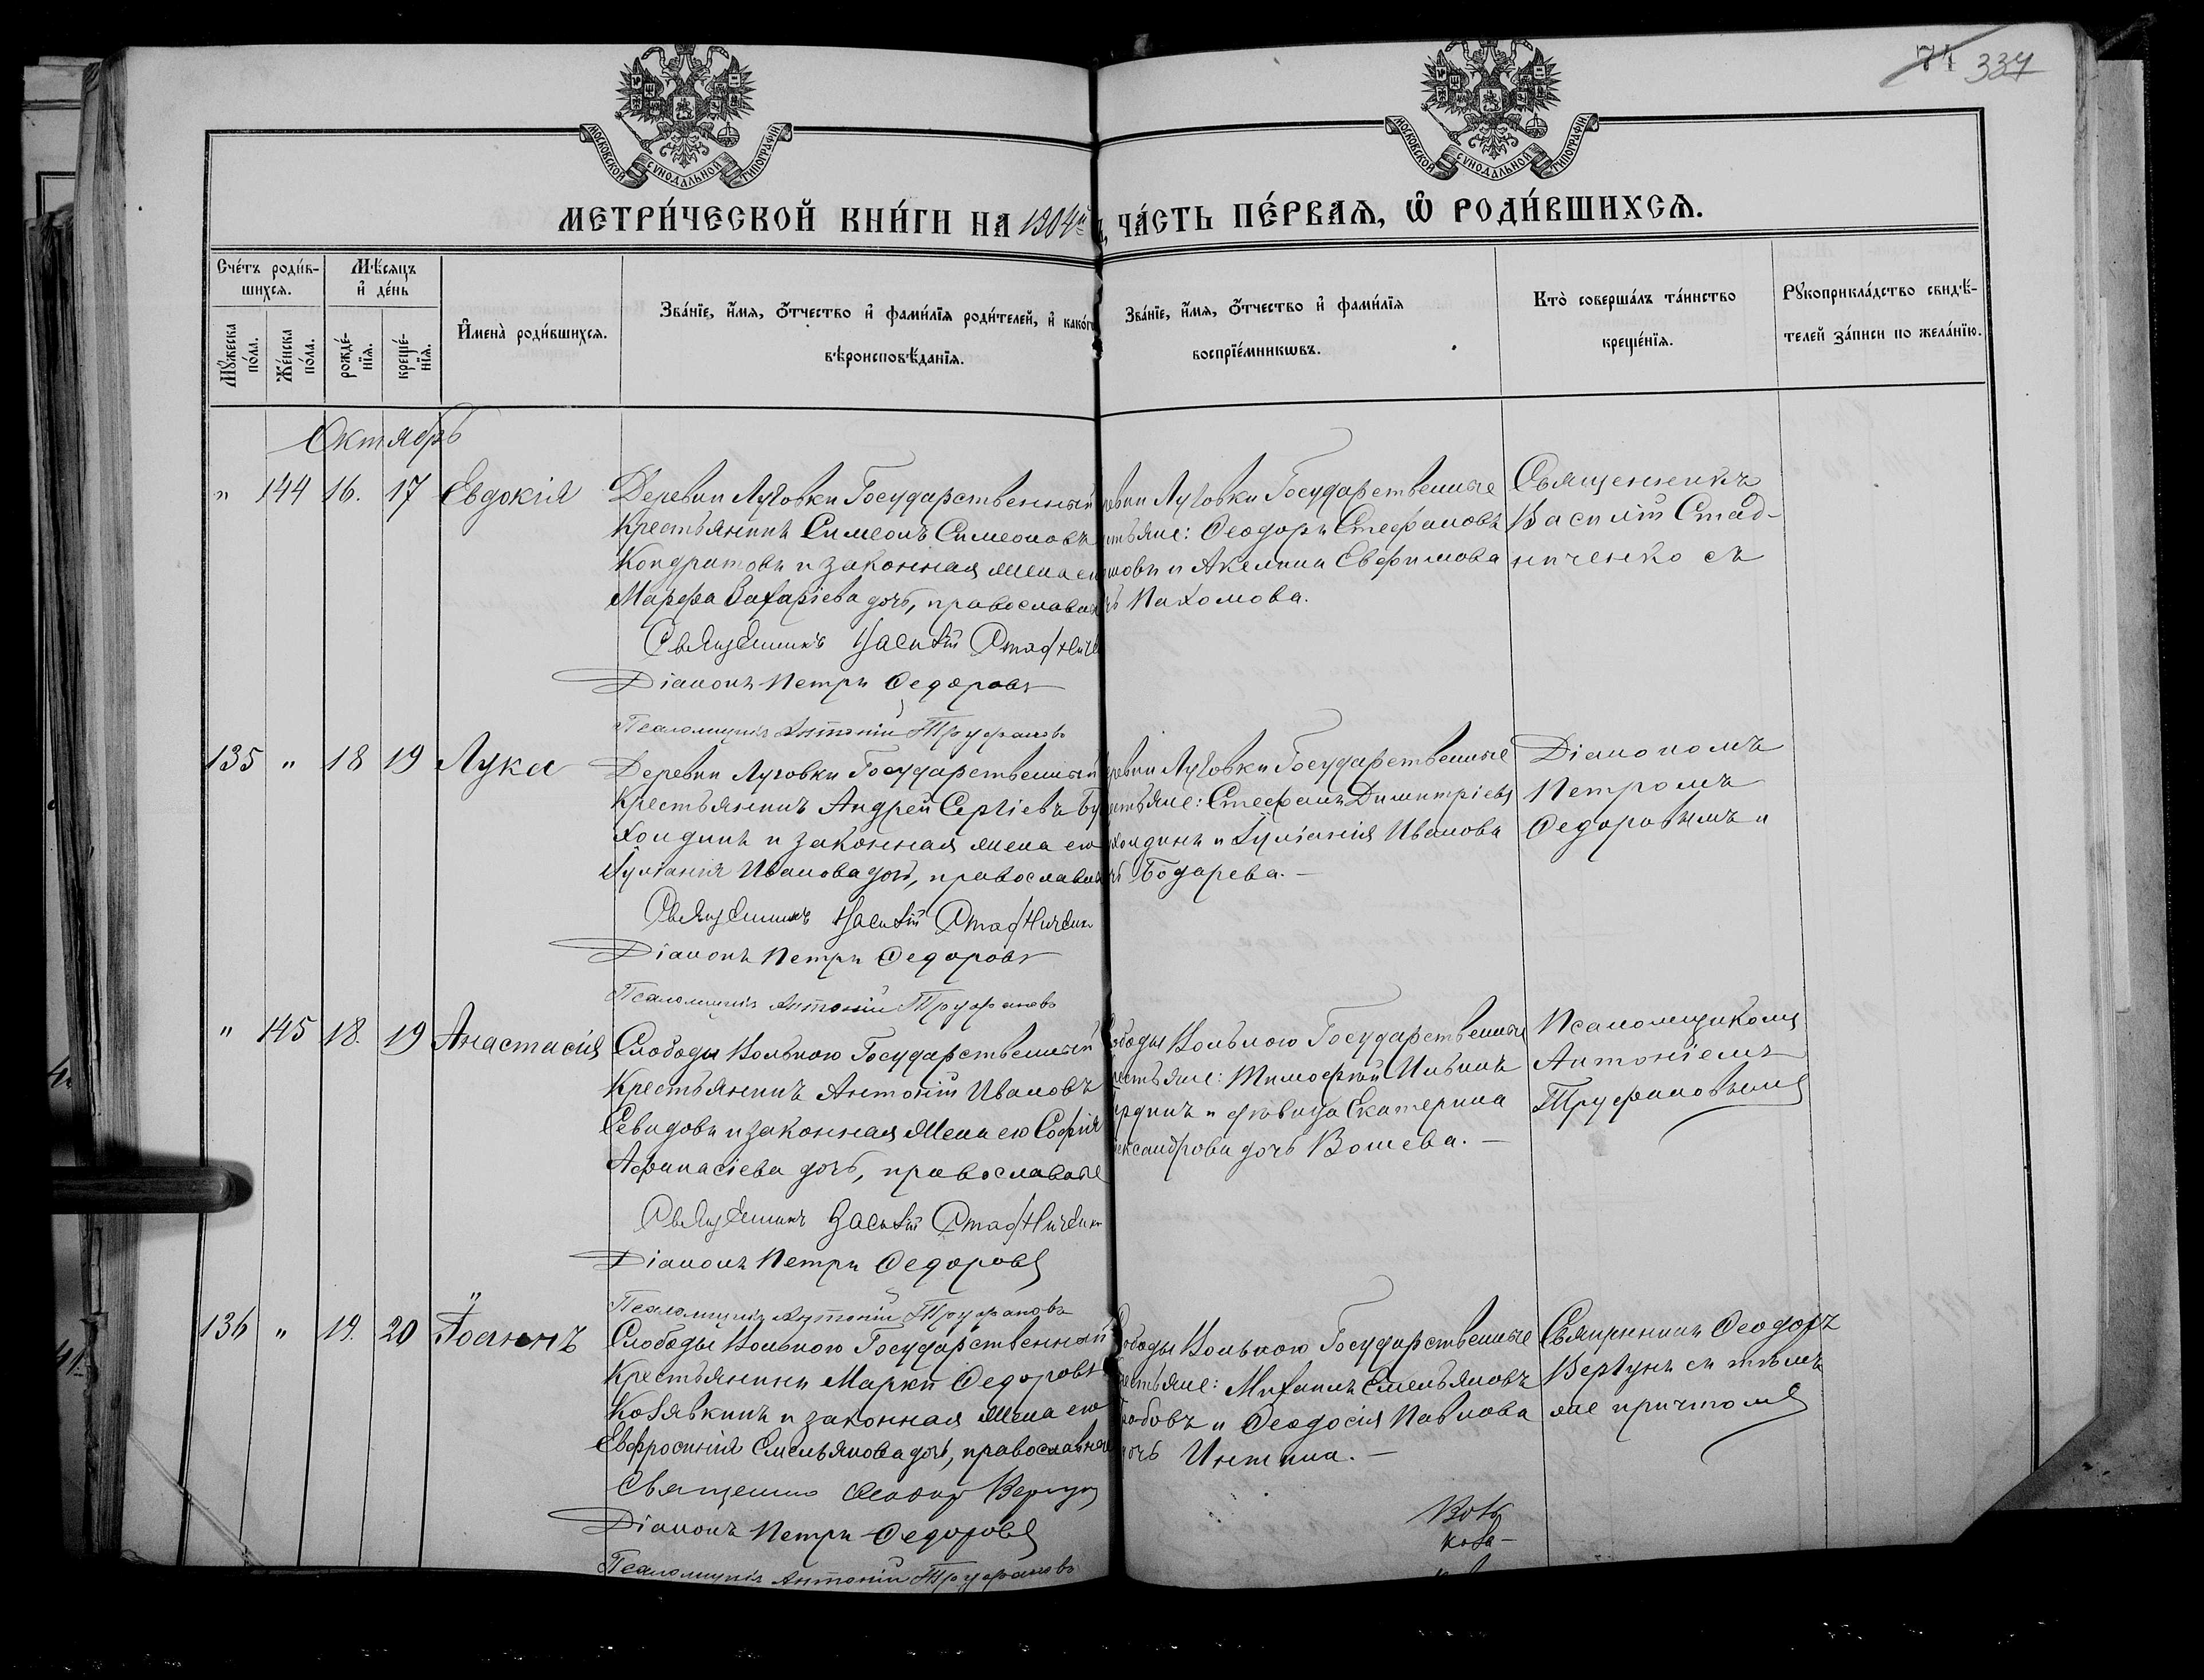 74 334
МОСКОВСКОЙ СѴНОДАЛЬНОЙ ТИПОГРАФІИ
МОСКОВСКОЙ СѴНОДАЛЬНОЙ ТИПОГРАФІИ
МЕТРИ́ЧЕСКОЙ КНИ́ГИ НА 1904й ЧА́СТЬ ПЕ́РВАѦ, Ѽ РОДИ́ВШИХСѦ.
Сче́тъ роди́в-
шихся.
Мѣ́сяцъ
и҆ де́нь
Мꙋ́жеска по́ла.
Же́нска по́ла.
рожде́-
нїя.
креще́-
нїя.
И҆мена̀ роди́вшихся.
Зва́нїе, и҆́мя, ѻ҆́тчество и҆ фами́лїя роди́телей, и҆ како́гѡ
вѣроисповѣ́данїя.
Зва́нїе, и҆́мя, ѻ҆́тчество и҆ фами́лїя
воспрїе́мникѡвъ.
Кто̀ соверша́лъ та́инство
креще́нїя.
Рꙋкоприкла́дство свидѣ́-
телей за́писи по жела́нїю.
Октябрь
" 144 16. 17 Евдокія
Деревни Луговки Государственный
Крестьянинъ Симеонъ Симеоновъ
Кондратовъ и законная жена его
Марфа Захаріева дочь, православн
Священникъ Василій Стадниче
Діаконъ Петръ Федоровъ
Псаломщикъ Антоній Труфановъ
ревни Луговки Государственные
стьяне: Феодоръ Стефановъ
шовъ и Акелина Евфимова
чь Пахомова.
Священникъ
Василій Стад-
ниченко съ
135 " 18 19 Лука
Деревни Луговки Государственный
Крестьянинъ Андрей Сергіевъ Бу
хондинъ и законная жена его
Іуліанія Иванова дочь, православн
Священникъ Василій Стадниченко
Діаконъ Петръ Федоровъ
Псаломщикъ Антоній Труфановъ
ревни Луговки Государственные
стьяне: Стефанъ Димитріевъ
хондинъ и Іуліанія Иванова
чь Бодарева.-
Діакономъ
Петромъ
Федоровымъ и
" 145 18. 19 Анастасія
Слободы Вольною Государственный
Крестьянинъ Антоній Ивановъ
Севидовъ и законная жена его Софія
Афанасіева дочь, православные
Священникъ Василій Стадниченко
Діаконъ Петръ Федоровъ
Псаломщикъ Антоній Труфановъ
ободы Вольною Государственные
рестьяне: Тимофей Ильинъ
рдинъ и дѣвица Екатерина
ександрова дочь Вошева.-
Псаломщикомъ
Антоніемъ
Труфановымъ
136 " 19. 20 Іоаннъ
Слободы Вольною Государственный
Крестьянинъ Маркъ Федоровъ
Козявкинъ и законная жена его
Евфросинія Емельянова дочь, православные
Священник Феодор Вергун
Діаконъ Петръ Федоровъ
Псаломщикъ Антоній Труфановъ
ободы Вольною Государственные
рестьяне: Михаилъ Емельяновъ
бовъ и Феодосія Павлова
дочь Иншина.-
Священникъ Феодоръ
Вергунъ съ тѣмъ
же причтомъ